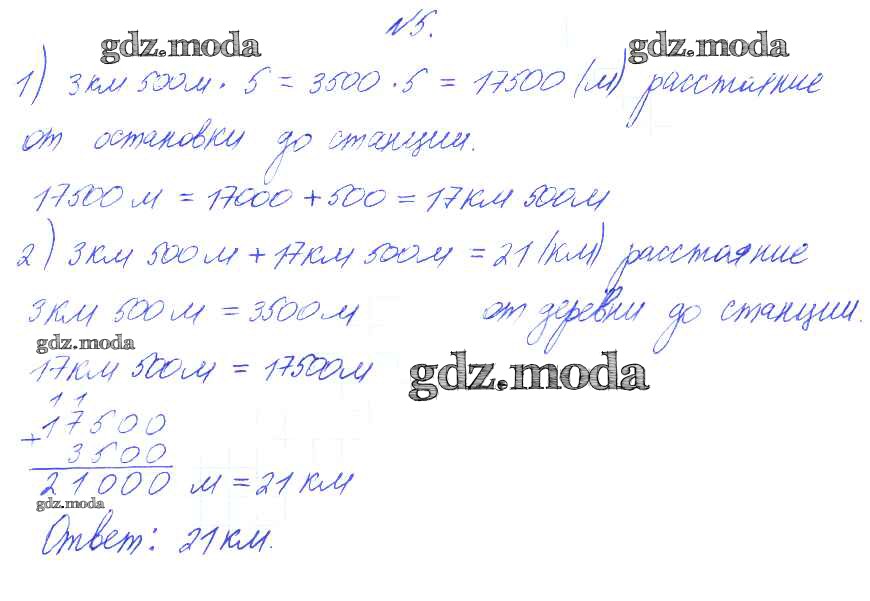 №5.
gdz.moda gdz.moda
1) 3км 500м · 5 = 3500 · 5 = 17500 (м) расстояние
от остановки до станции.
17500 м = 17000 + 500 = 17км 500м
2) 3км 500м + 17км 500м = 21 (км) расстояние
3км 500м = 3500м от деревни до станции.
gdz.moda
17км 500м = 17500м
gdz.moda
1 1
17500
+ 3500
21000 м = 21 км
gdz.moda
Ответ: 21км.